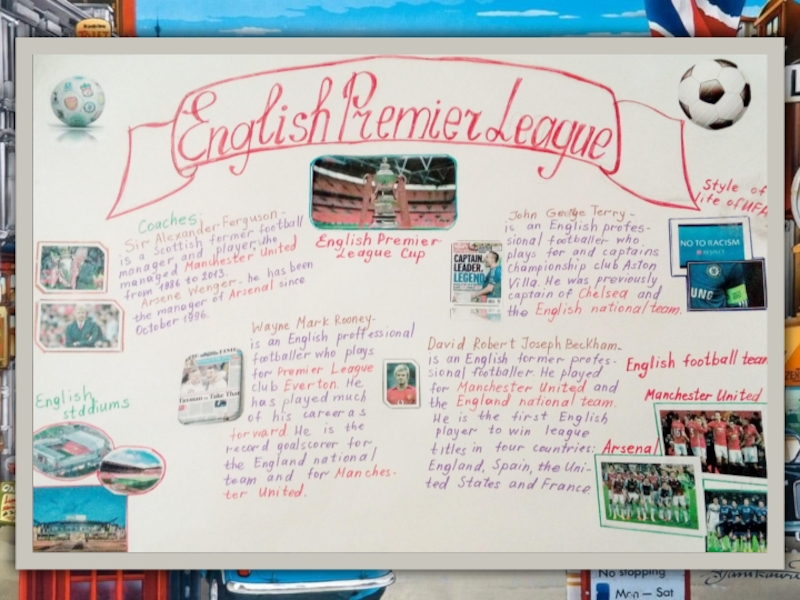 English Premier League
Coaches:
Sir Alexander Ferguson -
is a Scottish former football
manager and player, who
managed Manchester United
from 1986 to 2013.
Arsene Wenger - he has been
the manager of Arsenal since
October 1996.
English Premier
League Cup
CAPTAIN.
LEADER.
LEGEND
John George Terry -
is an English profes-
sional footballer who
plays for and captains
Championship club Aston
Villa. He was previously
captain of Chelsea and
the English national team.
Style of
life of UEFA
NO TO RACISM
UNG
Wayne Mark Rooney-
is an English proffessional
footballer who plays
for Premier League
club Everton. He
has played much
of his career as
forward. He is the
record goalscorer for
the England national
team and for Manches-
ter United.
David Robert Joseph Beckham-
is an English former profes-
sional footballer. He played
for Manchester United and
the England national team.
He is the first English
player to win league
titles in four countries:
England, Spain, the Uni-
ted States and France.
English football team
Manchester United
Arsenal
English
stadiums
No stopping
Mon – Sat